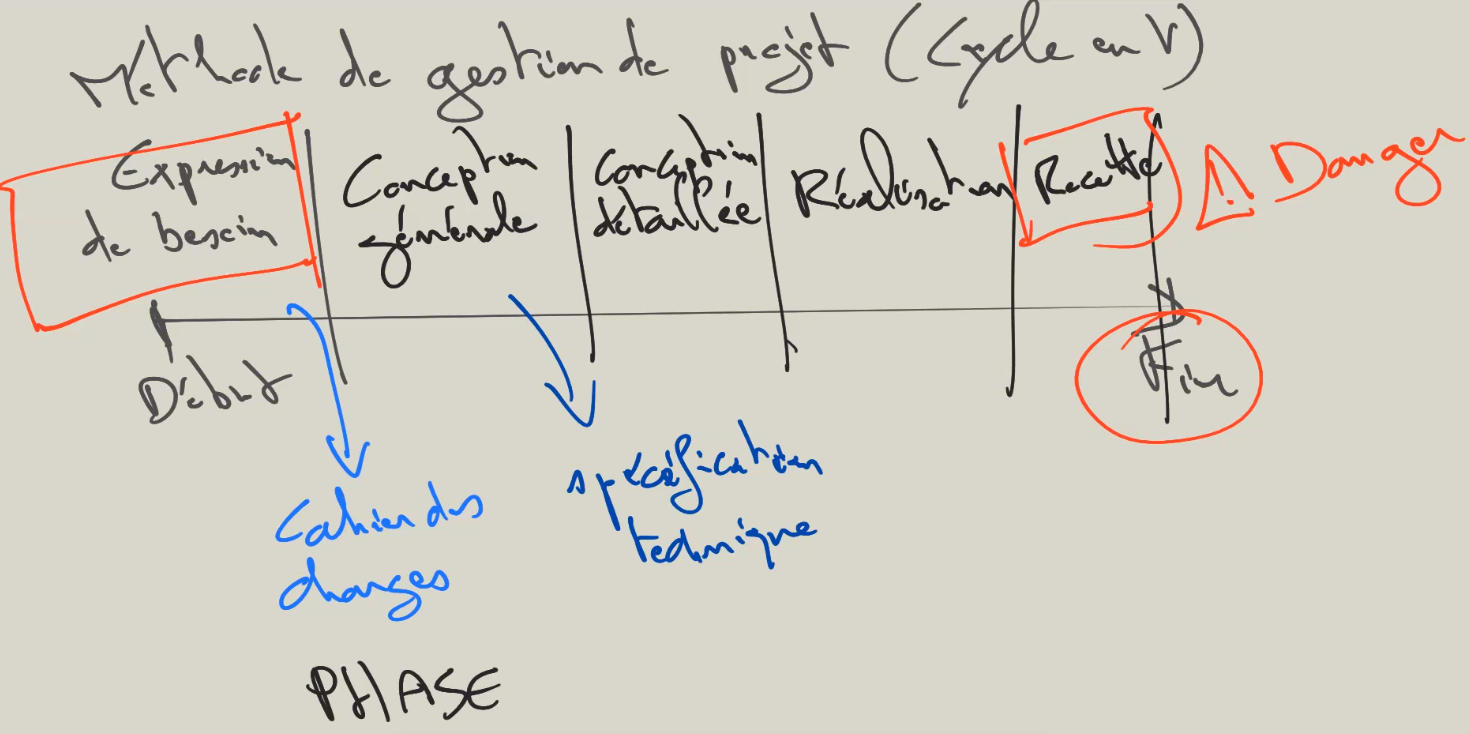 Méthode de gestion de projet (Cycle en V)
Expression
de besoin
Conception
générale
Conception
détaillée
Réalisation
Recette
Danger
Début
Fin
Cahier des
charges
spécification
technique
PHASE